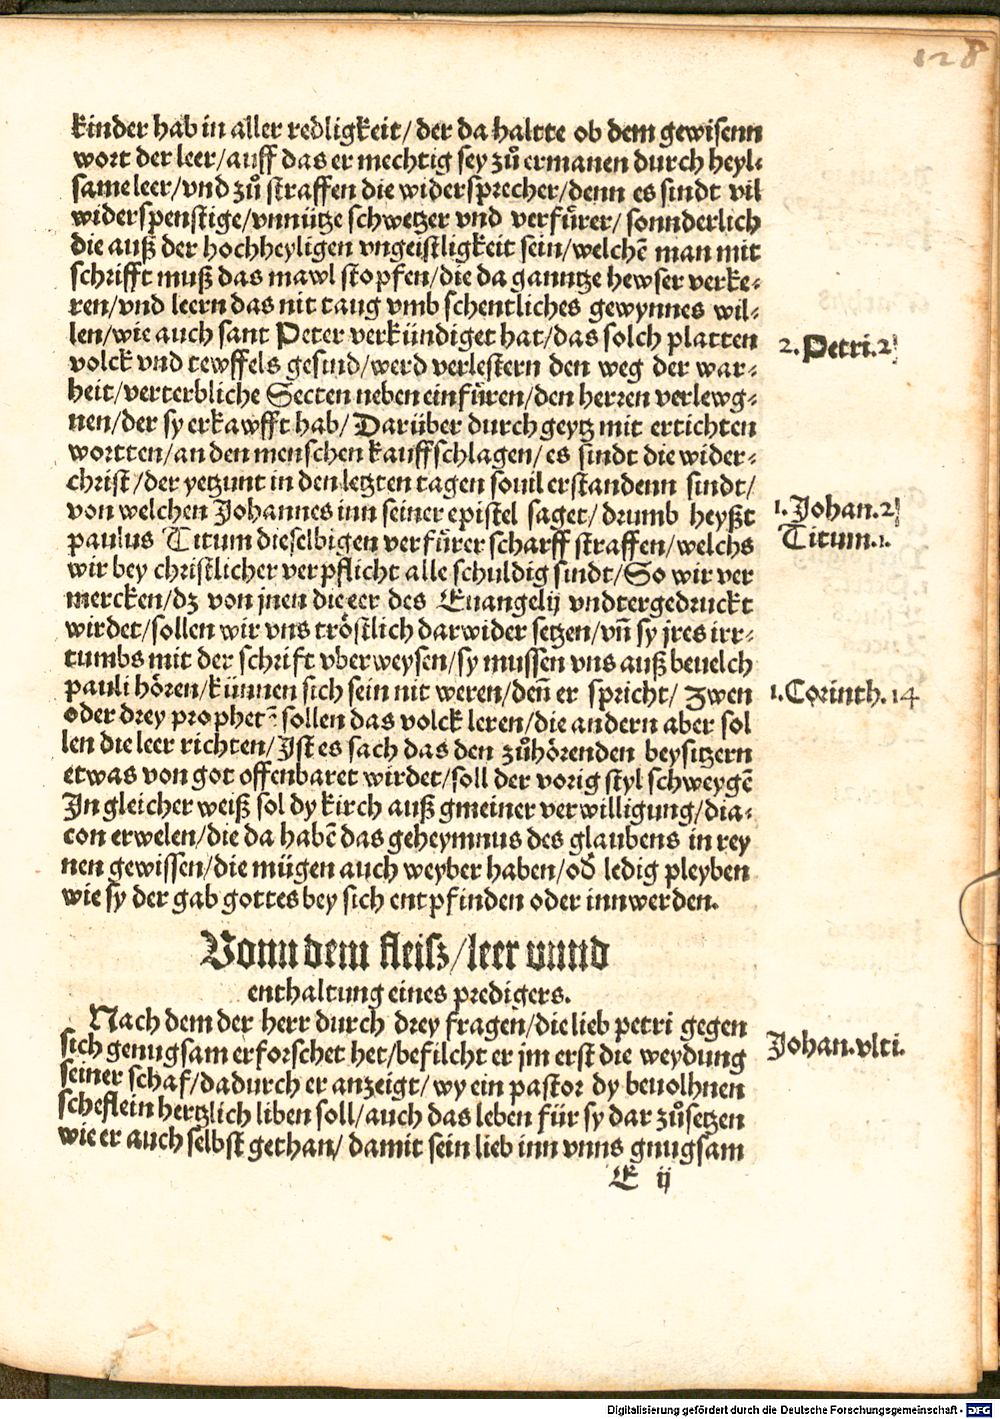 128
kinder hab in aller redligkeit/ der da haltte ob dem gewisenn
wort der leer/auff das er mechtig sey zů ermanen durch heyl⸗
same leer/vnd zů straffen die widersprecher/denn es sindt vil
widerspenstige/vnnütze schwetzer vnd verfürer/ sonnderlich
die auß der hochheyligen vngeistligkeit sein/welchē man mit
schrifft muß das mawl stopfen/die da ganntze hewser verke⸗
ren/vnd leern das nit taug vmb schentliches gewynnes wil⸗
len/wie auch sant Peter verkündiget hat/das solch platten
2. Petri.2
volck vnd tewffels gesind/werd verlestern den weg der war⸗
heit/verterbliche Secten neben einfüren/den herren verlewg⸗
nen/der sy erkawfft hab/ Darüber durch geytz mit ertichten
wortten/an den menschen kauffschlagen/es sindt die wider⸗
christ/der yetzunt in den letzten tagen souil erstandenn sindt/
von welchen Johannes inn seiner epistel saget/ drumb heyßt
1. Johan.2
paulus Titum dieselbigen verfürer scharff straffen/welchs
Titum.1.
wir bey christlicher verpflicht alle schuldig sindt/So wir ver
mercken/dz von jnen die eer des Euangelij vndtergedruckt
wirdet/sollen wir vns tröstlich darwider setzen/vñ sy jres irr⸗
tumbs mit der schrift vberweysen/sy mussen vns auß beuelch
pauli hören/künnen sich sein nit weren/deñ er spricht/ zwen
1. Corinth. 14
oder drey prophetē sollen das volck leren/die andern aber sol
len die leer richten/Ist es sach das den zůhörenden beysitzern
etwas von got offenbaret wirdet/soll der vorig styl schweygē
In gleicher weiß sol dy kirch auß gmeiner verwilligung/dia⸗
con erwelen/die da habē das geheymnus des glaubens in rey
nen gewissen/die mügen auch weyber haben/od̄ ledig pleyben
wie sy der gab gottes bey sich entpfinden oder innwerden.
Vonn dem fleisz/leer vnnd
enthaltung eines predigers.
Nach dem der herr durch drey fragen/die lieb petri gegen
sich genugsam erforschet het/befilcht er jm erst die weydung
Johan.vlti.
seiner schaf/dadurch er anzeigt/wy ein pastor dy beuolhnen
scheflein hertzlich liben soll/auch das leben für sy dar zůsetzen
wie er auch selbst gethan/ damit sein lieb inn vnns gnugsam
E ij
Digitalisierung gefördert durch die Deutsche Forschungsgemeinschaft - DFG